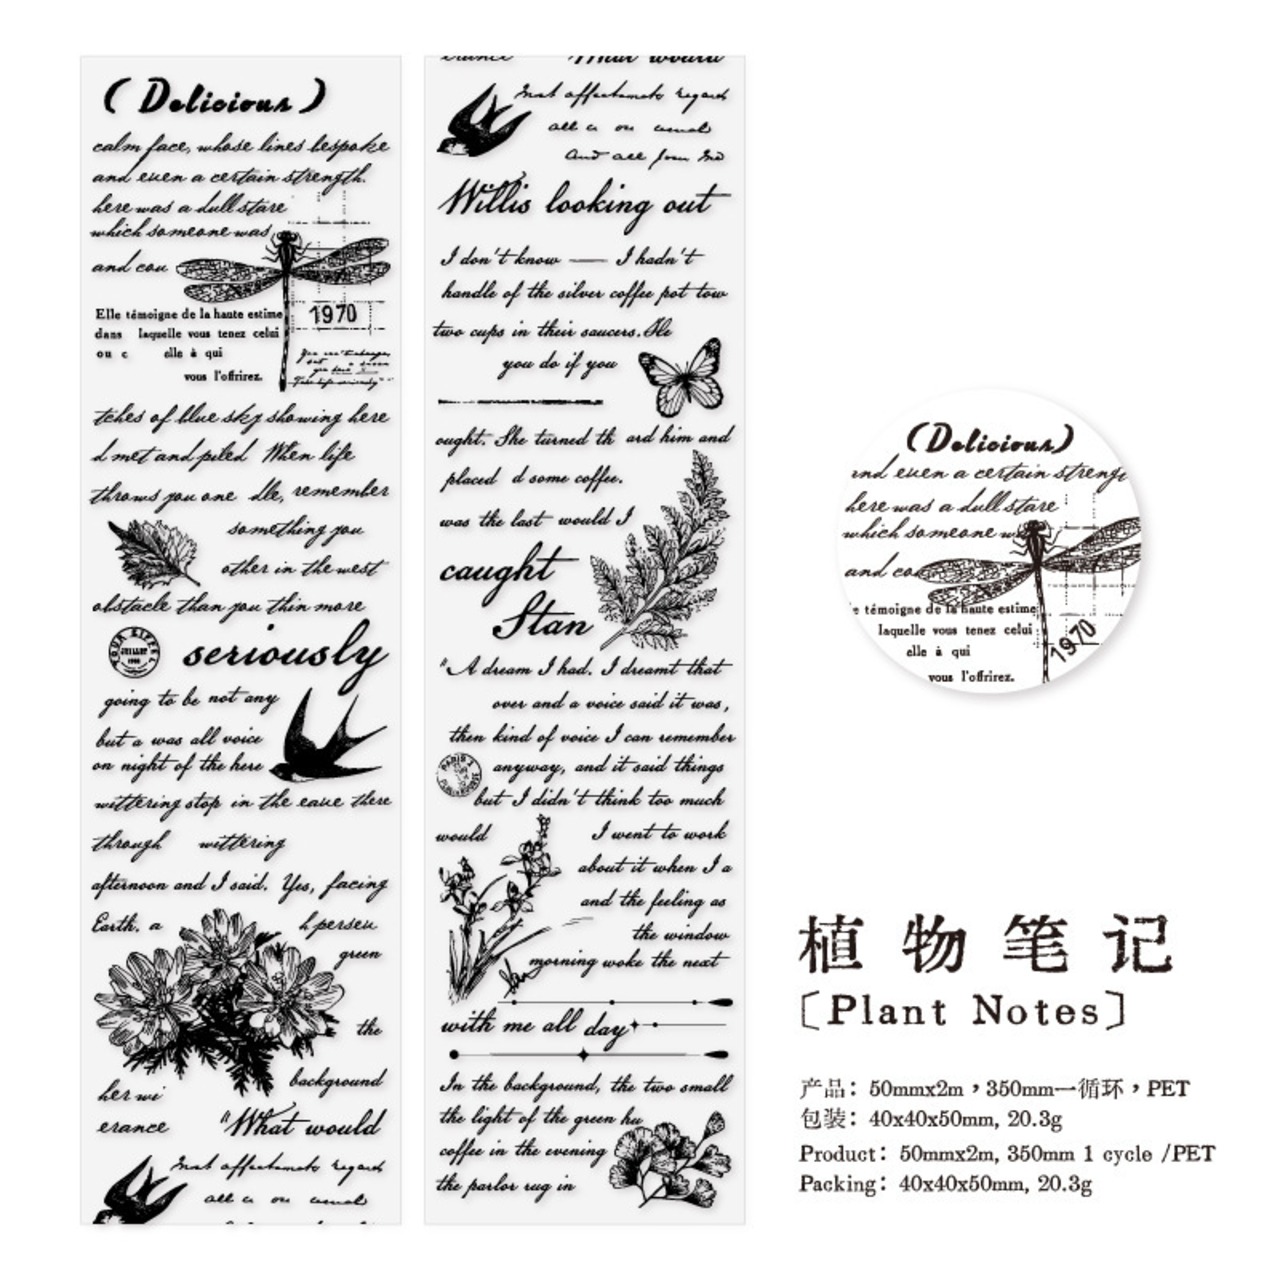 ( Delicious )
calm face, whose lines bespoke
and even a certain strength.
here was a dull stare
which someone was
and cou
Elle témoigne de la haute estime
dans laquelle vous tenez celui
ou c elle à qui
vous l'offrirez.
1970
tches of blue sky showing here
d met and piled When life
throws you one dle, remember
something you
other in the west
obstacle than you thin more
JUILLET
seriously
going to be not any
but a was all voice
on night of the here
wittering stop in the eave there
through wittering
afternoon and I said. Yes, facing
Earth. a h perseu
green
the
background
her wi
erance "What would
all a on usual
Willis looking out
I don't know — I hadn't
handle of the silver coffee pot tow
two cups in their saucers. He
you do if you
ought. She turned th ard him and
placed d some coffee.
was the last would I
caught
Stan
"A dream I had. I dreamt that
over and a voice said it was,
then kind of voice I can remember
PARIS
anyway, and it said things
but I didn't think too much
would I went to work
about it when I a
and the feeling as
the window
morning woke the next
with me all day
In the background, the two small
the light of the green hu
coffee in the evening
the parlor rug in
(Delicious)
and even a certain streng
here was a dull stare
which someone w
and co
e témoigne de la haute estime
laquelle vous tenez celui
elle à qui
vous l'offrirez.
1970
植物笔记
[Plant Notes]
产品：50mmx2m，350mm一循环，PET
包装：40x40x50mm, 20.3g
Product：50mmx2m, 350mm 1 cycle /PET
Packing：40x40x50mm, 20.3g